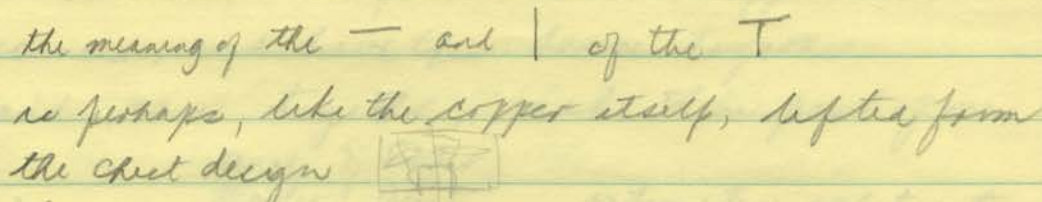 the meaning of the — and | of the T
is perhaps, like the copper itself, lifted from
the chest design